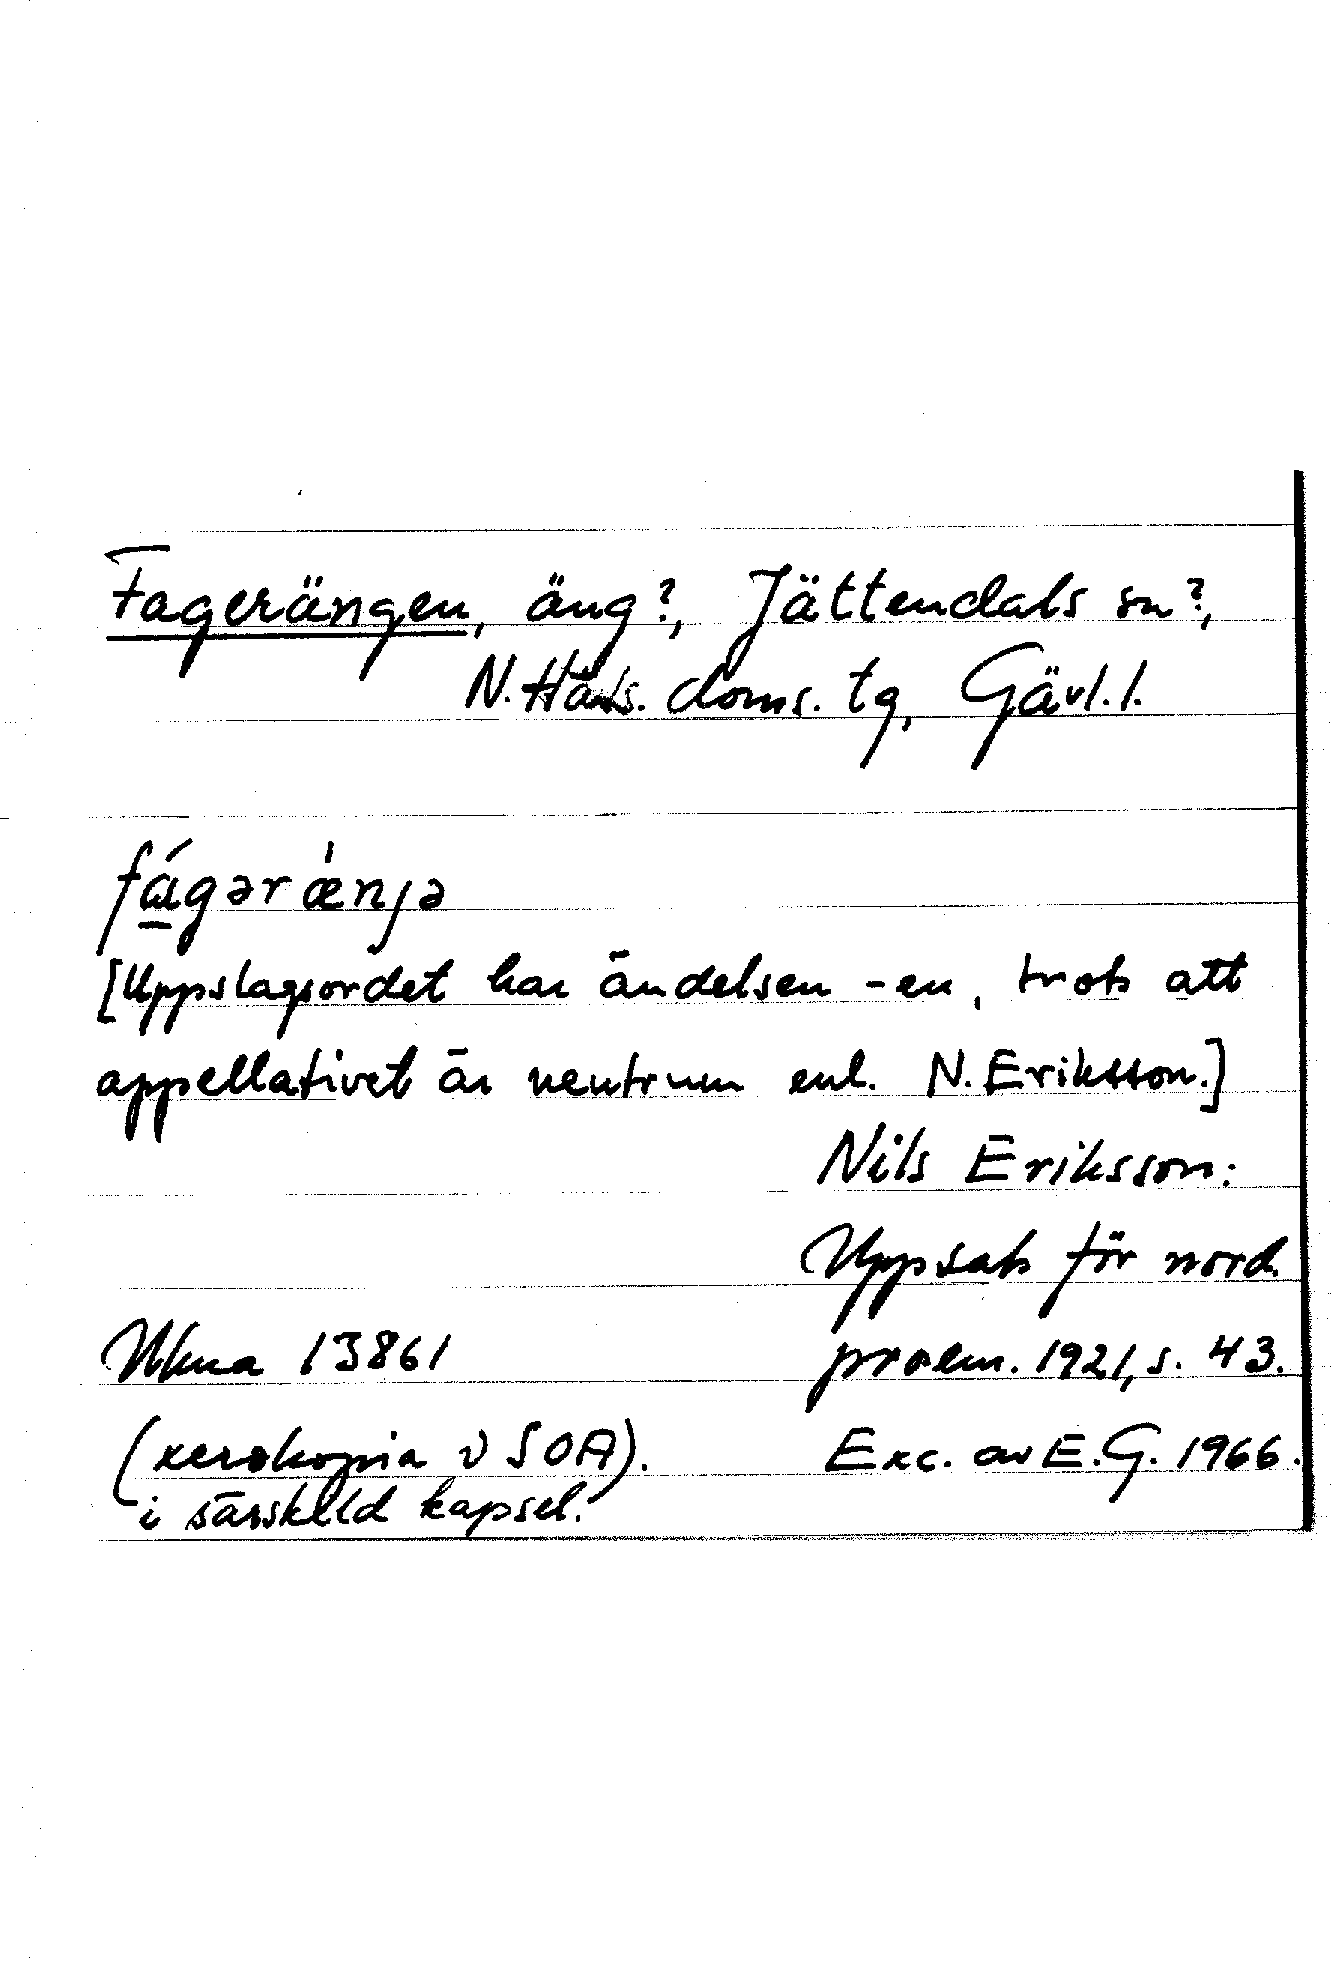 Fagerängen, äng?, Jättendals sn?,
N. Häls. doms. tg, Gävl. l.
fágərǽnjə
[Uppslagsordet har ändelsen -en, trots att
appellativet är neutrum enl. N. Eriksson.]
Nils Eriksson:
Uppsats för nord.
Ukna 13861
proem. 1921, s. 43.
(xerokopia i SOA).
Exc. av E.G. 1966.
i särskild kapsel.